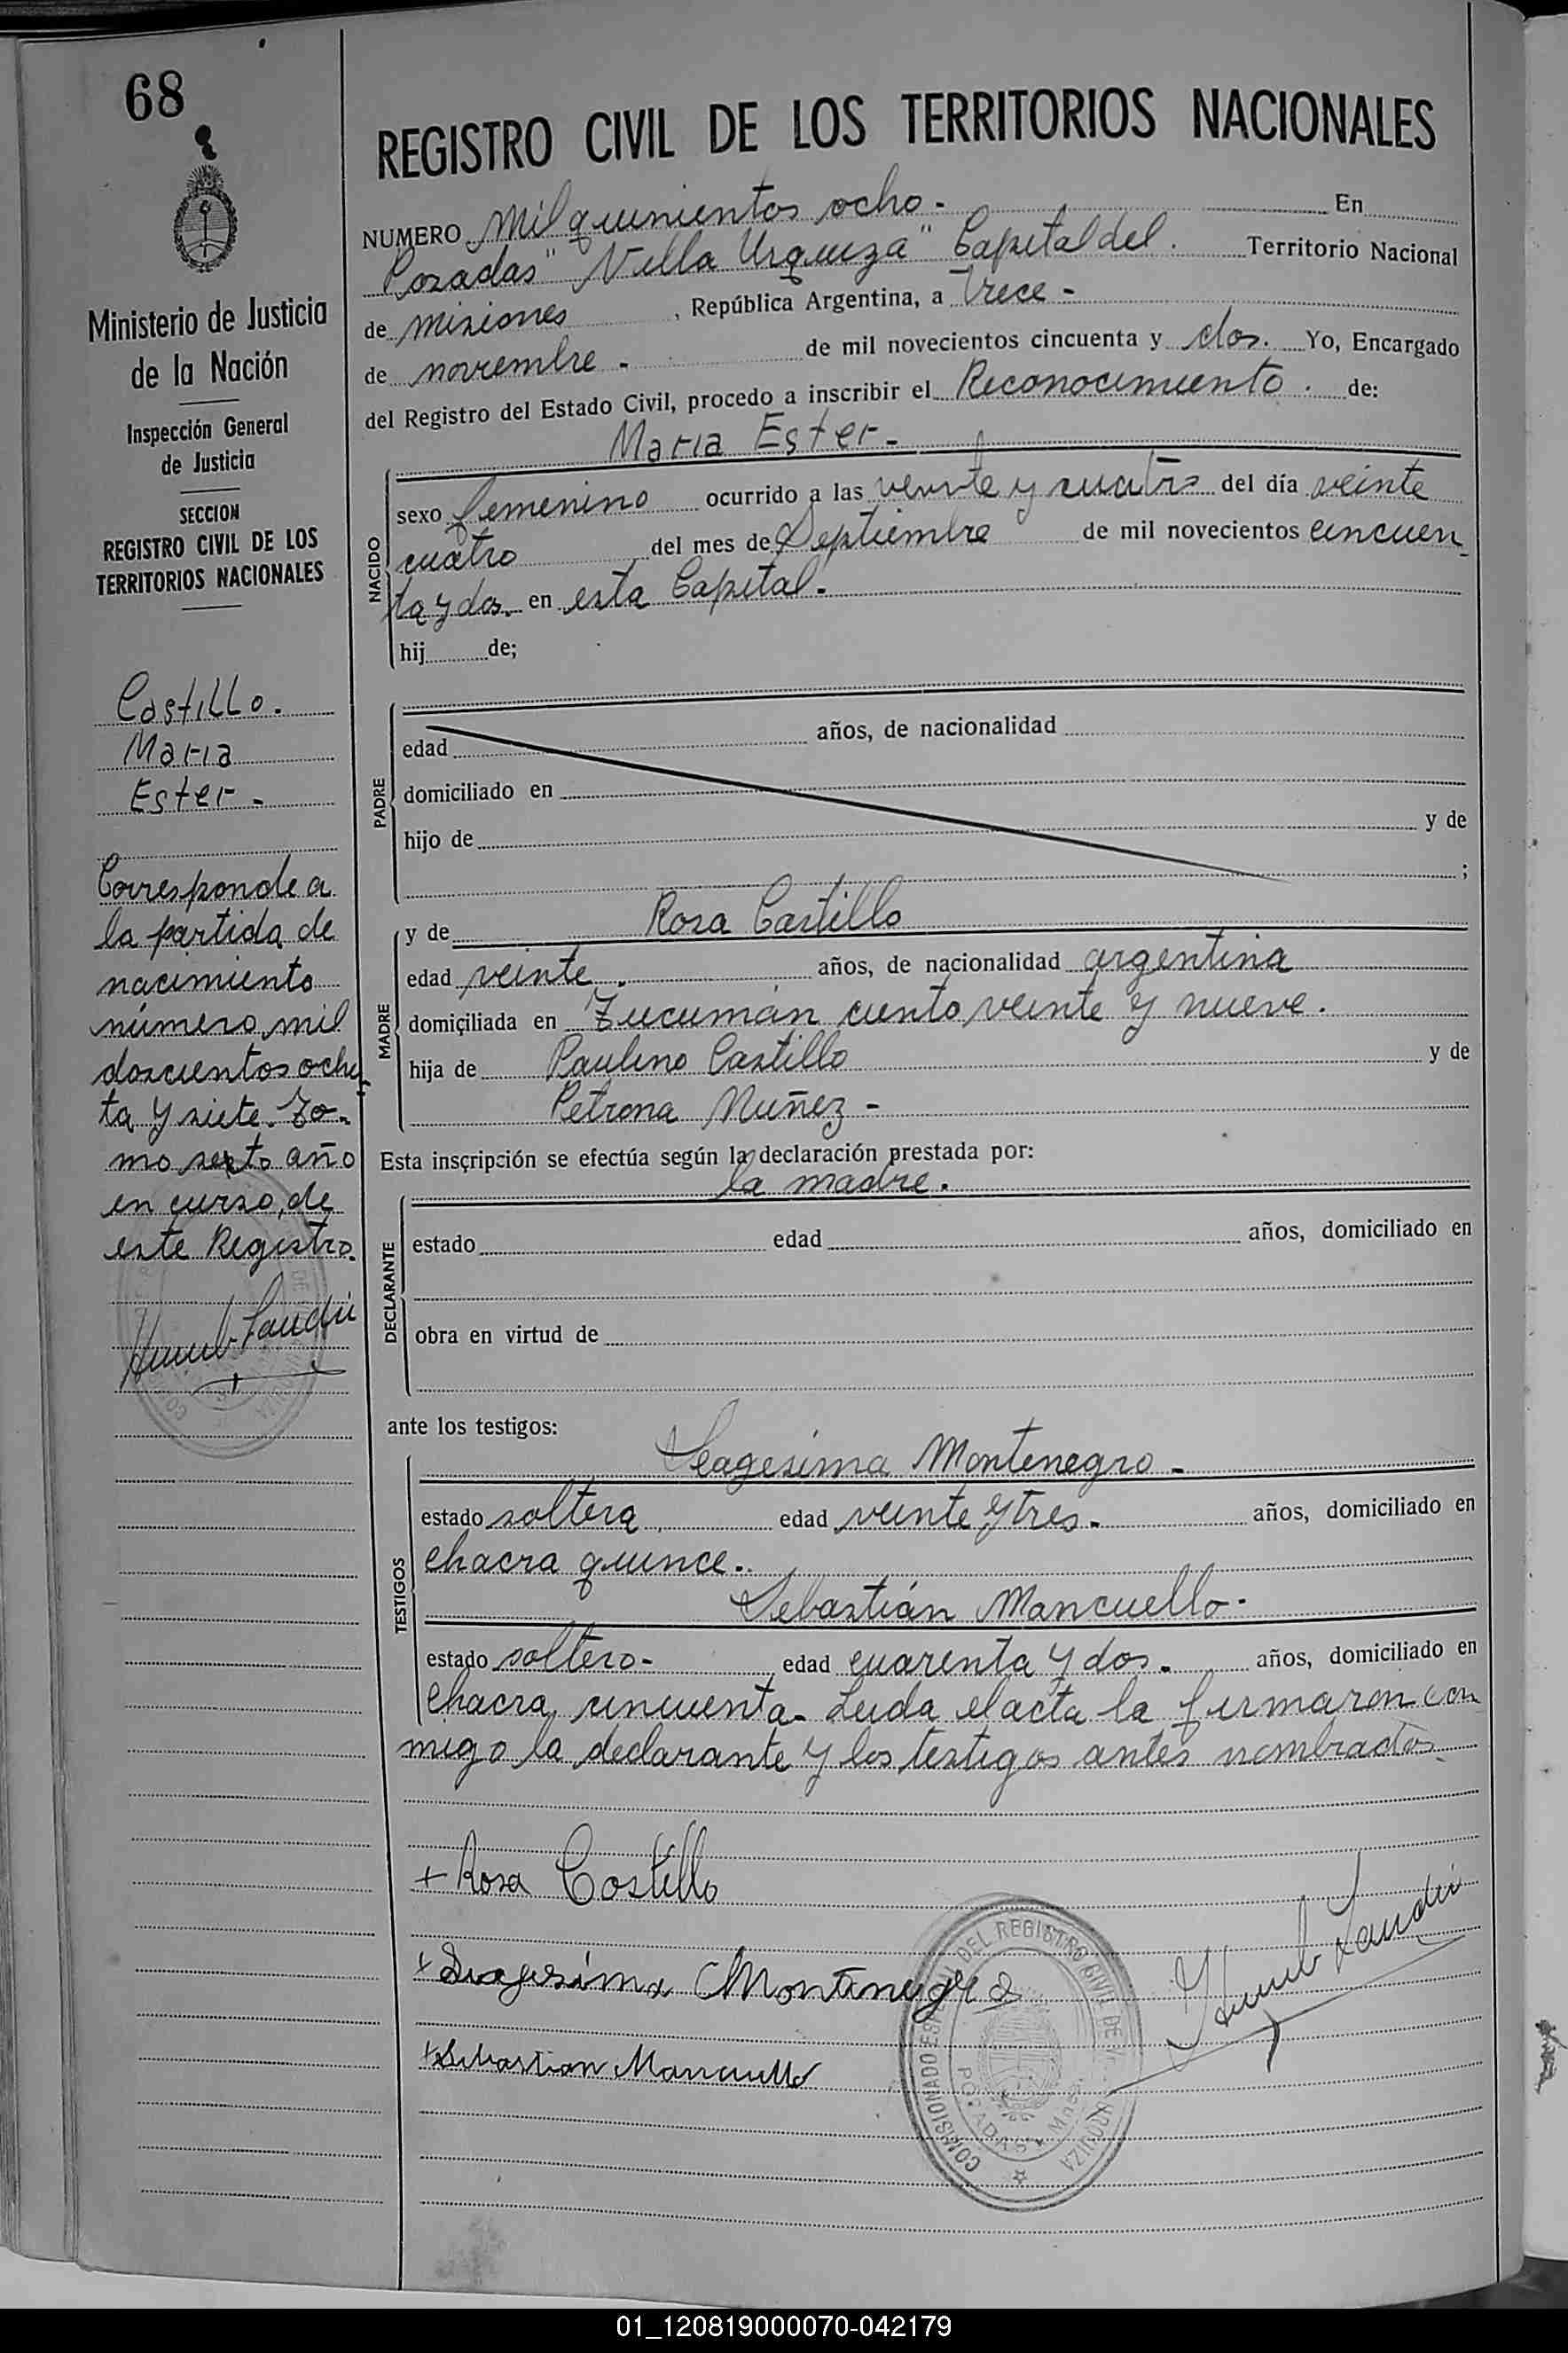 68
Ministerio de Justicia
de la Nación
Inspección General
de Justicia
SECCION
REGISTRO CIVIL DE LOS
TERRITORIOS NACIONALES
Castillo.
Maria
Ester -
Corresponde a
la partida de
nacimiento
número mil
doscientos ochen
ta y siete. To-
mo sexto año
en curso, de
este Registro.
REGISTRO CIVIL DE LOS TERRITORIOS NACIONALES
NUMERO Mil quinientos ocho - En
Posadas "Villa Urquiza" Capital del. Territorio Nacional
de Misiones , República Argentina, a Trece -
de noviembre - de mil novecientos cincuenta y dos. Yo, Encargado
del Registro del Estado Civil, procedo a inscribir el Reconocimiento. de:
Maria Ester -
NACIDO
sexo femenino ocurrido a las veinte y cuatro del día veinte
cuatro del mes de Septiembre de mil novecientos cincuen
ta y dos. en esta Capital -
hij de;
PADRE
edad años, de nacionalidad
domiciliado en
hijo de y de
;
MADRE
y de Rosa Castillo
edad veinte. años, de nacionalidad argentina
domiciliada en Tucumán ciento veinte y nueve.
hija de Paulino Castillo y de
Petrona Nuñez -
Esta inscripción se efectúa según la declaración prestada por:
la madre.
DECLARANTE
estado edad años, domiciliado en
obra en virtud de
ante los testigos:
TESTIGOS
Seagesima Montenegro -
estado soltera edad veinte y tres - años, domiciliado en
chacra quince.
Sebastián Mancuello -
estado soltero - edad cuarenta y dos - años, domiciliado en
chacra cincuenta - Leida el acta la firmaron con
migo la declarante y los testigos antes nombrados.
+ Rosa Costillo
+ Montenegro
+ Sebastian Mancuello
DEL REGISTRO CIVIL DE
URQUIZA
COMISIONADO
POSADAS
01_120819000070-042179